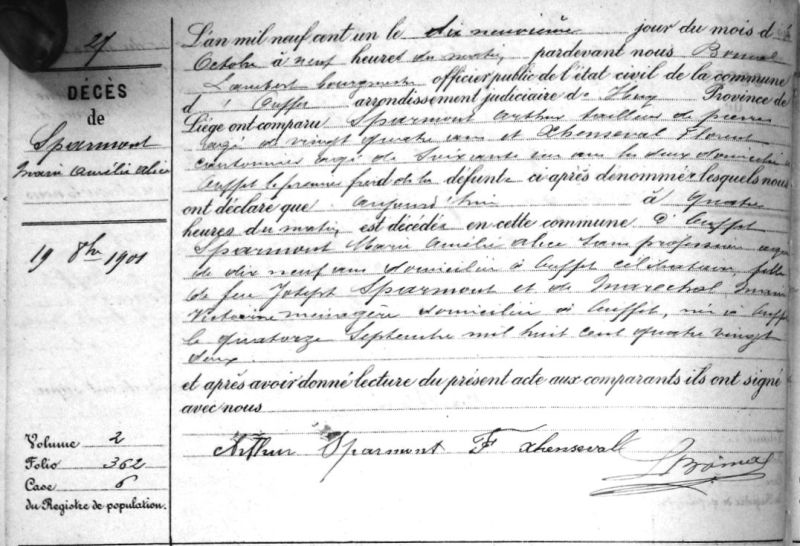 27
DÉCÈS
de
Sparmont
Marie Amélie Alice
19 8bre 1901
Volume 2
Folio 362
Case 6
du Registre de population.
L'an mil neuf cent un le dix neuvième jour du mois d
Octobre à neuf heures du matin, pardevant nous
Lambert bourgmestre officier public de l'état civil de la commune
d'Ouffet arrondissement judiciaire de Huy Province de
Liége ont comparu Sparmont Arthur tailleur de pierres
âgé de vingt quatre ans et Xhenseval Florent
cantonnier âgé de soixante un ans les deux domiciliés à
Ouffet le premier frère de la défunte ci après dénommée lesquels nous
ont déclaré que aujourd'hui à quatre
heures du matin, est décédée en cette commune d'Ouffet
Sparmont Marie Amélie Alice sans profession âgée
de dix neuf ans domiciliée à Ouffet célibataire, fille
de feu Joseph Sparmont et de Marechal Marie
Victorine ménagère domiciliée à Ouffet, née à Ouffet
le quatorze Septembre mil huit cent quatre vingt
deux.
et après avoir donné lecture du présent acte aux comparants ils ont signé
avec nous
Arthur Sparmont F Xhenseval